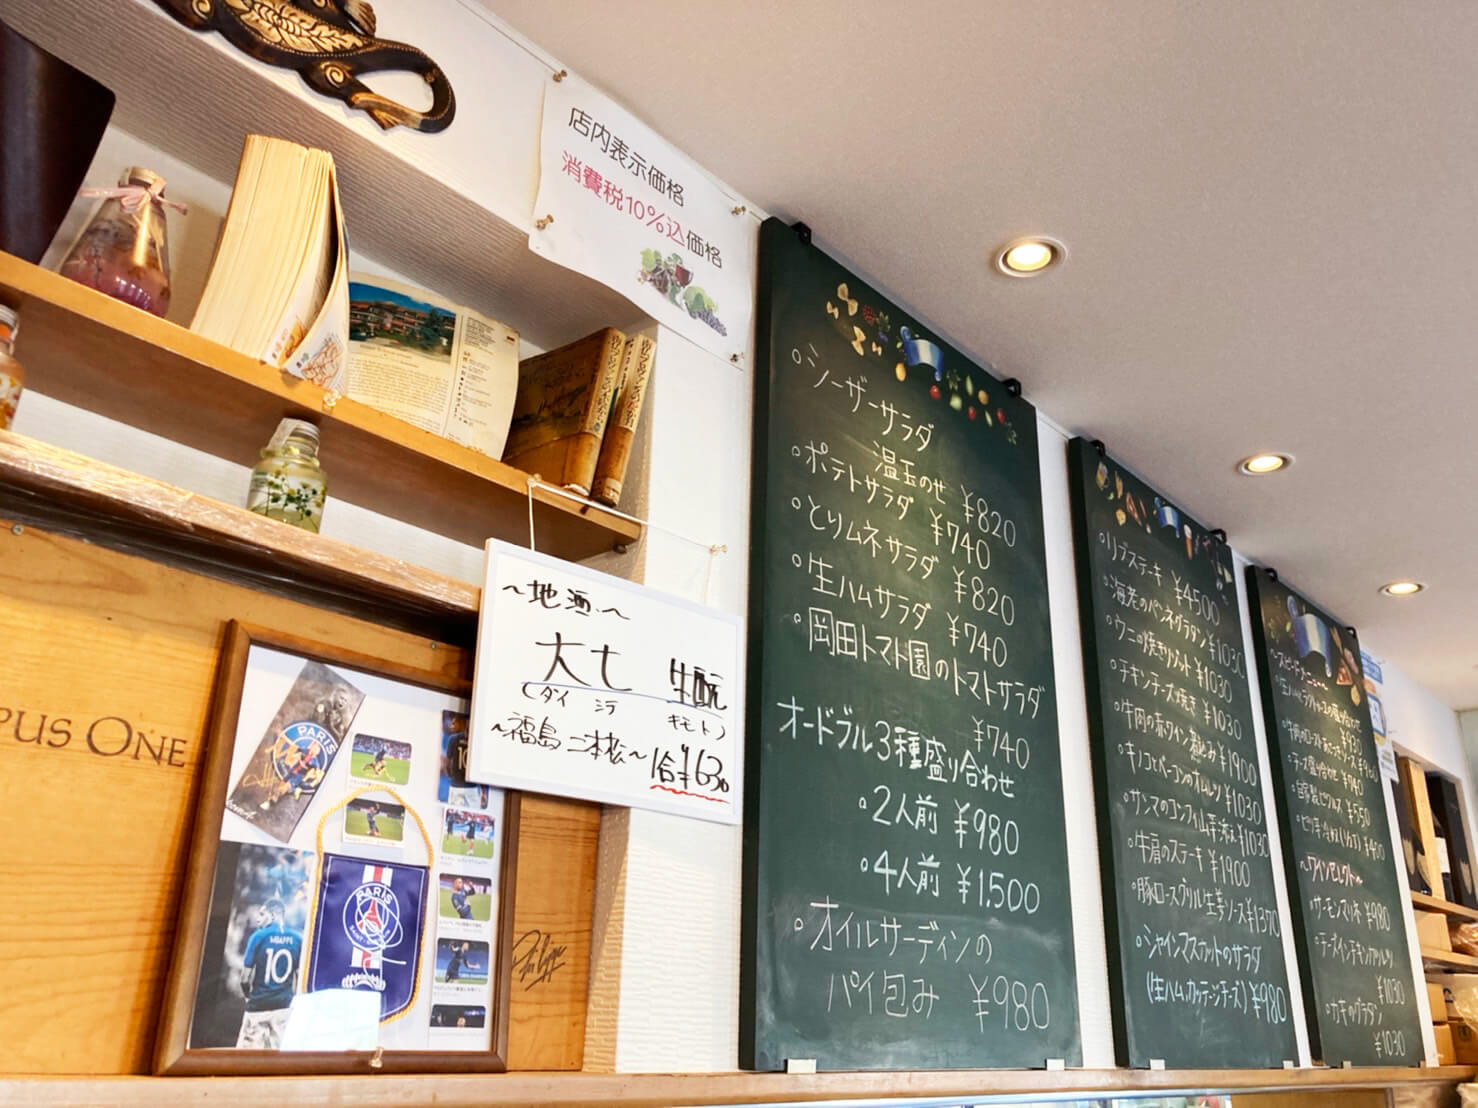 店内表示価格
消費税10%込価格
PUS ONE
～地酒～
大七 生酛
(ダイ シチ キモト)
～福島 二本松～ 1合¥630
PARIS
PARIS
MBAPPE
10
。シーザーサラダ
温玉のせ ¥820
。ポテトサラダ ¥740
。とりムネサラダ ¥820
。生ハムサラダ ¥740
。岡田トマト園のトマトサラダ
¥740
オードブル3種盛り合わせ
。2人前 ¥980
。4人前 ¥1.500
。オイルサーディンの
パイ包み ¥980
。リブステーキ ¥4500
。海老のペンネグラタン ¥1030
。ウニの焼きリゾット ¥1030
。チキンチーズ焼き ¥1030
。牛肉の赤ワイン煮込み ¥1900
。キノコとベーコンのオムレツ ¥1030
。サンマのコンフィ 山芋添え ¥1030
。牛肩のステーキ ¥1900
。豚ロースグリル生姜ソース ¥1370
。シャインマスカットのサラダ
(生ハム.カッテージチーズ) ¥980
～スピードメニュー～
¥930
¥960
。チーズ盛り合わせ ¥740
。自家製ピクルス ¥550
¥400
～ワインセレクト～
。サーモンマリネ ¥980
¥1030
。カキのグラタン
¥1030